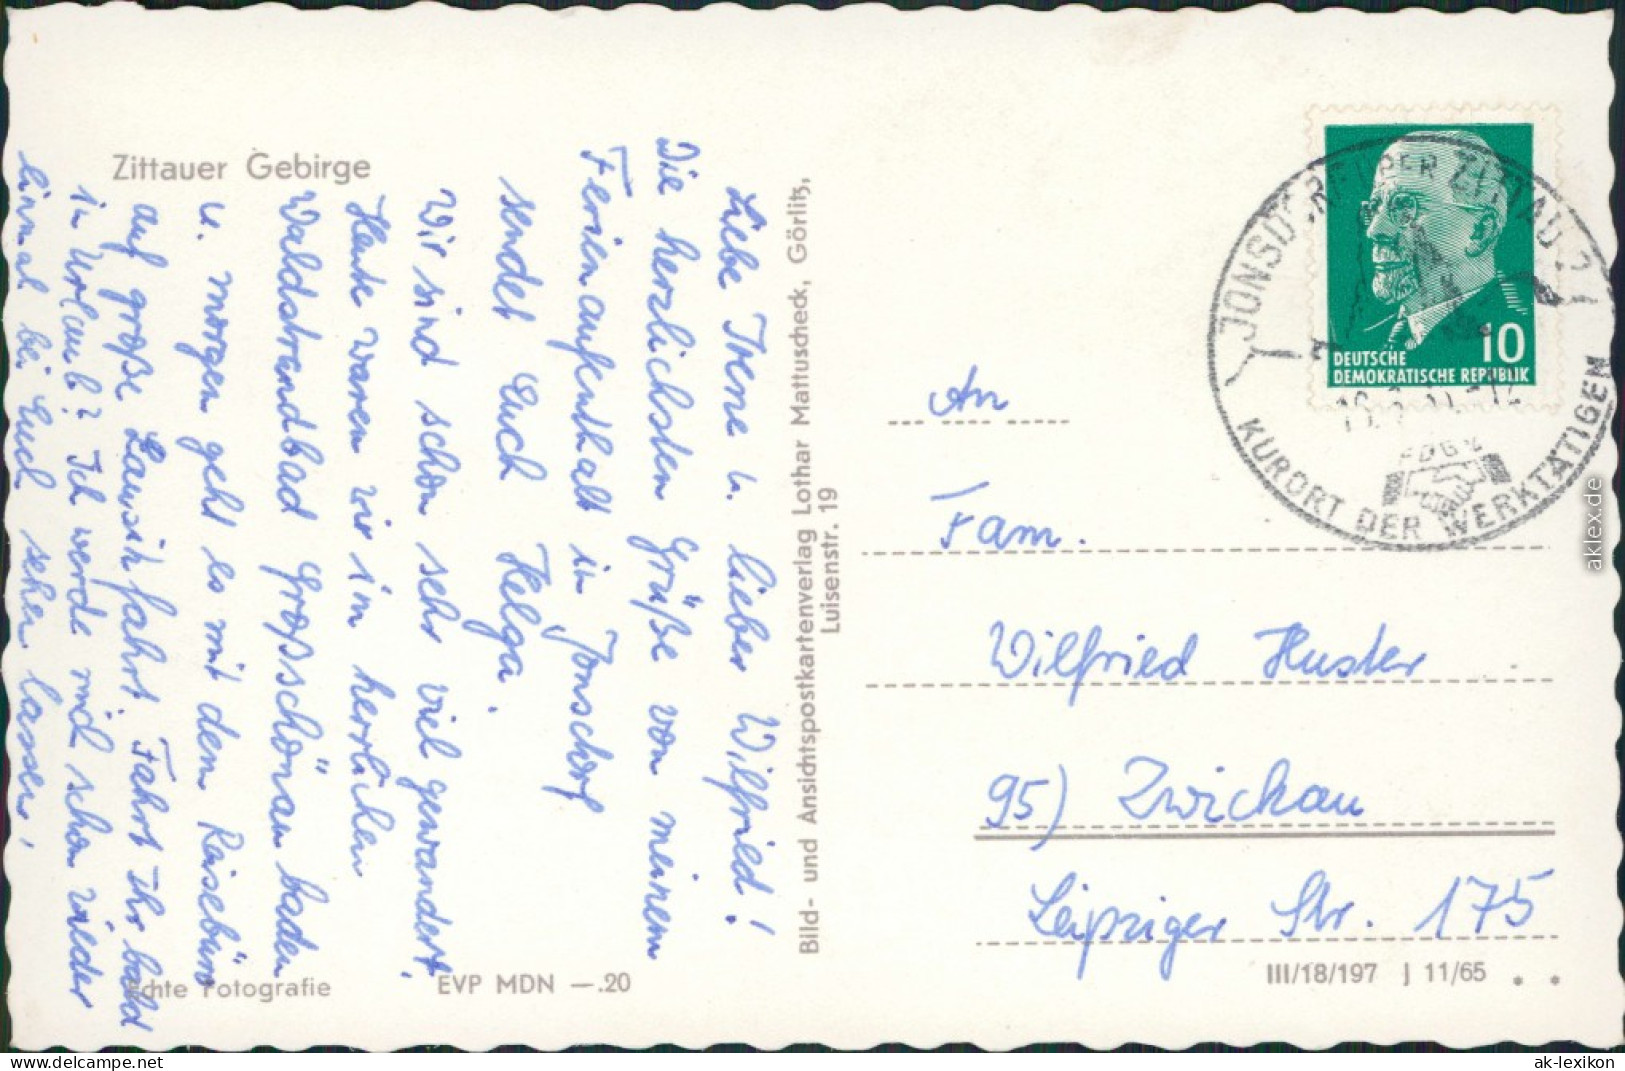 Zittauer Gebirge
Liebe Irene u. lieber Wilfried!
Die herzlichsten Grüße von meinem
Ferienaufenthalt in Jonsdorf
sendet Euch Helga.
Wir sind schon sehr viel gewandert.
Heute waren wir im herrlichen
Waldstrandbad Großschönau baden
u. morgen geht es mit dem Reisebüro
auf große Lausitzfahrt. Fahrt Ihr bald
in Urlaub? Ich werde mich schon wieder
einmal bei Euch sehen lassen!
echte Fotografie
EVP MDN —.20
Bild- und Ansichtspostkartenverlag Lothar Mattuscheck, Görlitz,
Luisenstr. 19
JONSDORF ÜBER ZITTAU 2
KURORT DER WERKTÄTIGEN
FDGB
10
DEUTSCHE
DEMOKRATISCHE REPUBLIK
An
Fam.
Wilfried Huster
95) Zwickau
Leipziger Str. 175
III/18/197 J 11/65
aklex.de
www.delcampe.net
ak-lexikon